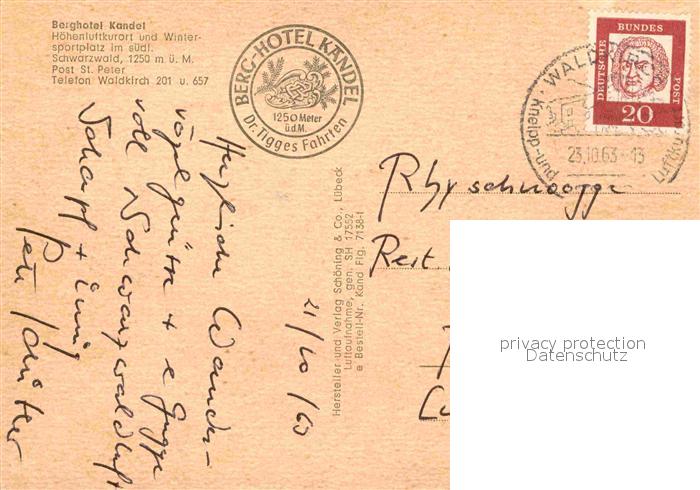 Berghotel Kandel
Höhenluftkurort und Winter-
sportplatz im südl.
Schwarzwald, 1250 m ü. M.
Post St. Peter
Telefon Waldkirch 201 u. 657
BERG-HOTEL KANDEL
1250 Meter
ü.d.M.
Dr. Tigges Fahrten
DEUTSCHE
BUNDES
POST
20
WALDK
23.10.63-13
Kneipp-und
Luftku
Herzliche Wander-
vögel grüsse + e Gugge
voll Schwarzwaldluft
Scharpf +
Peter
21/10/63
Hersteller und Verlag Schöning & Co., Lübeck
Luftaufnahme, gen. SH 17552
e Bestell-Nr. Kand Flg. 7138-1
Rhyschnoogge
Rest
privacy protection
Datenschutz